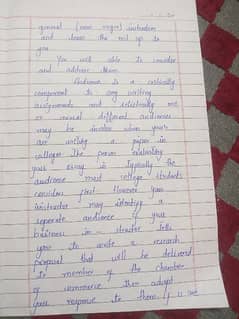 general (even vague) instruction
and leave the rest up to
you
You will able to consider
and address them.
Audience is a critically
component to any writing
assignments and realistically one
or several different audiences
may be involve when you
are writing a paper in
colleges. The person evaluating
your essay is typically the
audience most college students
consider first. However your
instructor may identify a
separate audience if your
business in - structor tells
you to write a research
proposal that will be delivered
to member of the chamber
of commerce then adapt
your response to them. If is not